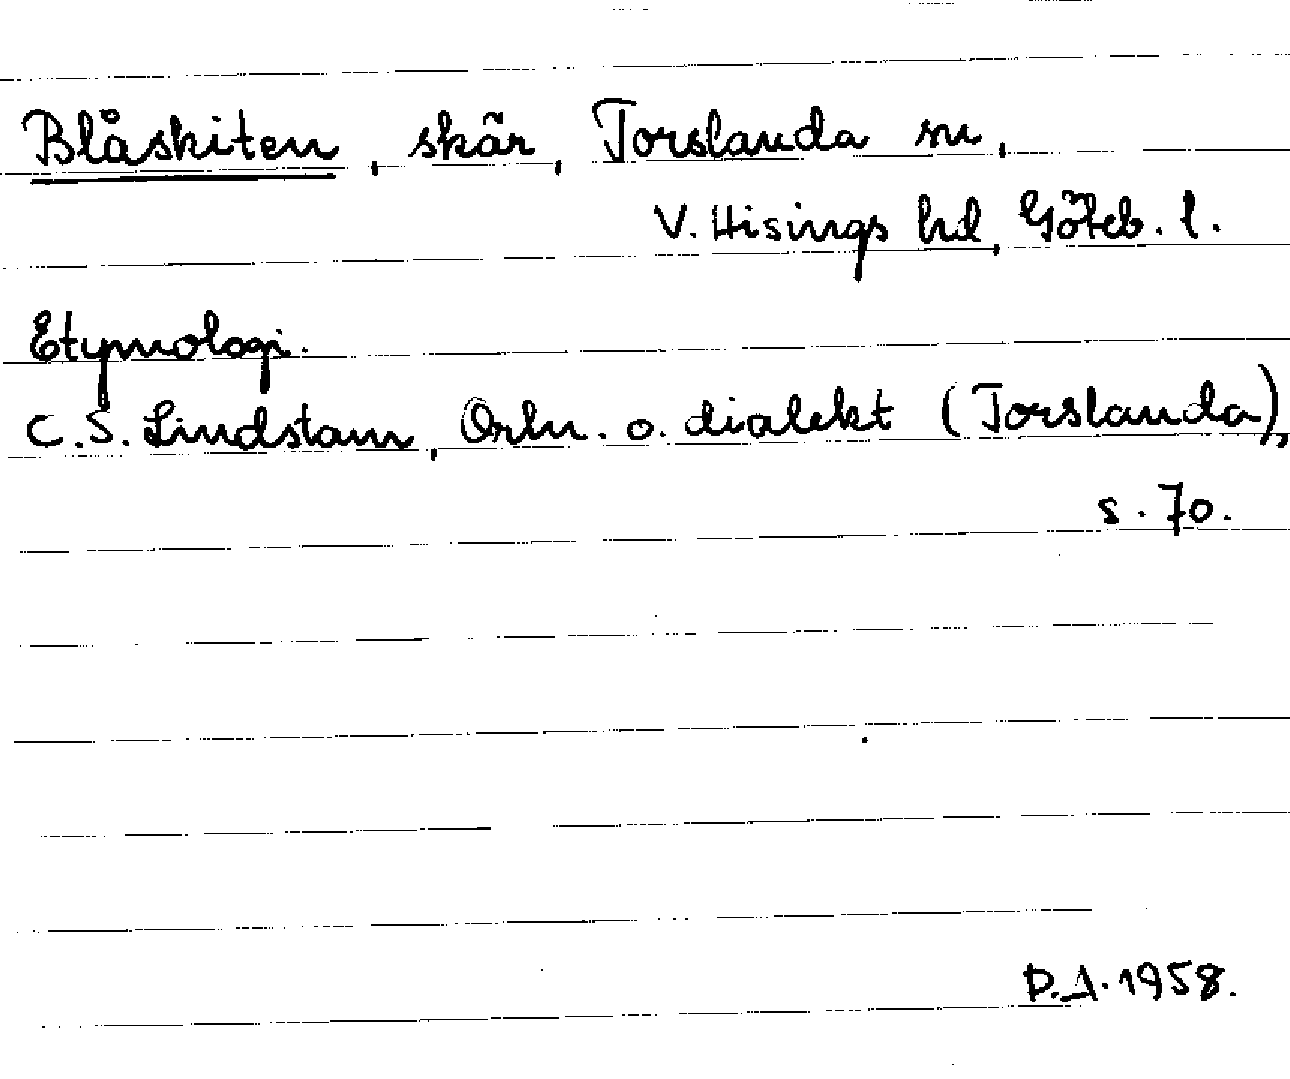 Blåskiten, skär, Torslanda sn,
V. Hisings hd, Göteb. l.
Etymologi.
C.S. Lindstam, Ortn. o. dialekt (Torslanda),
s. 70.
D.A. 1958.